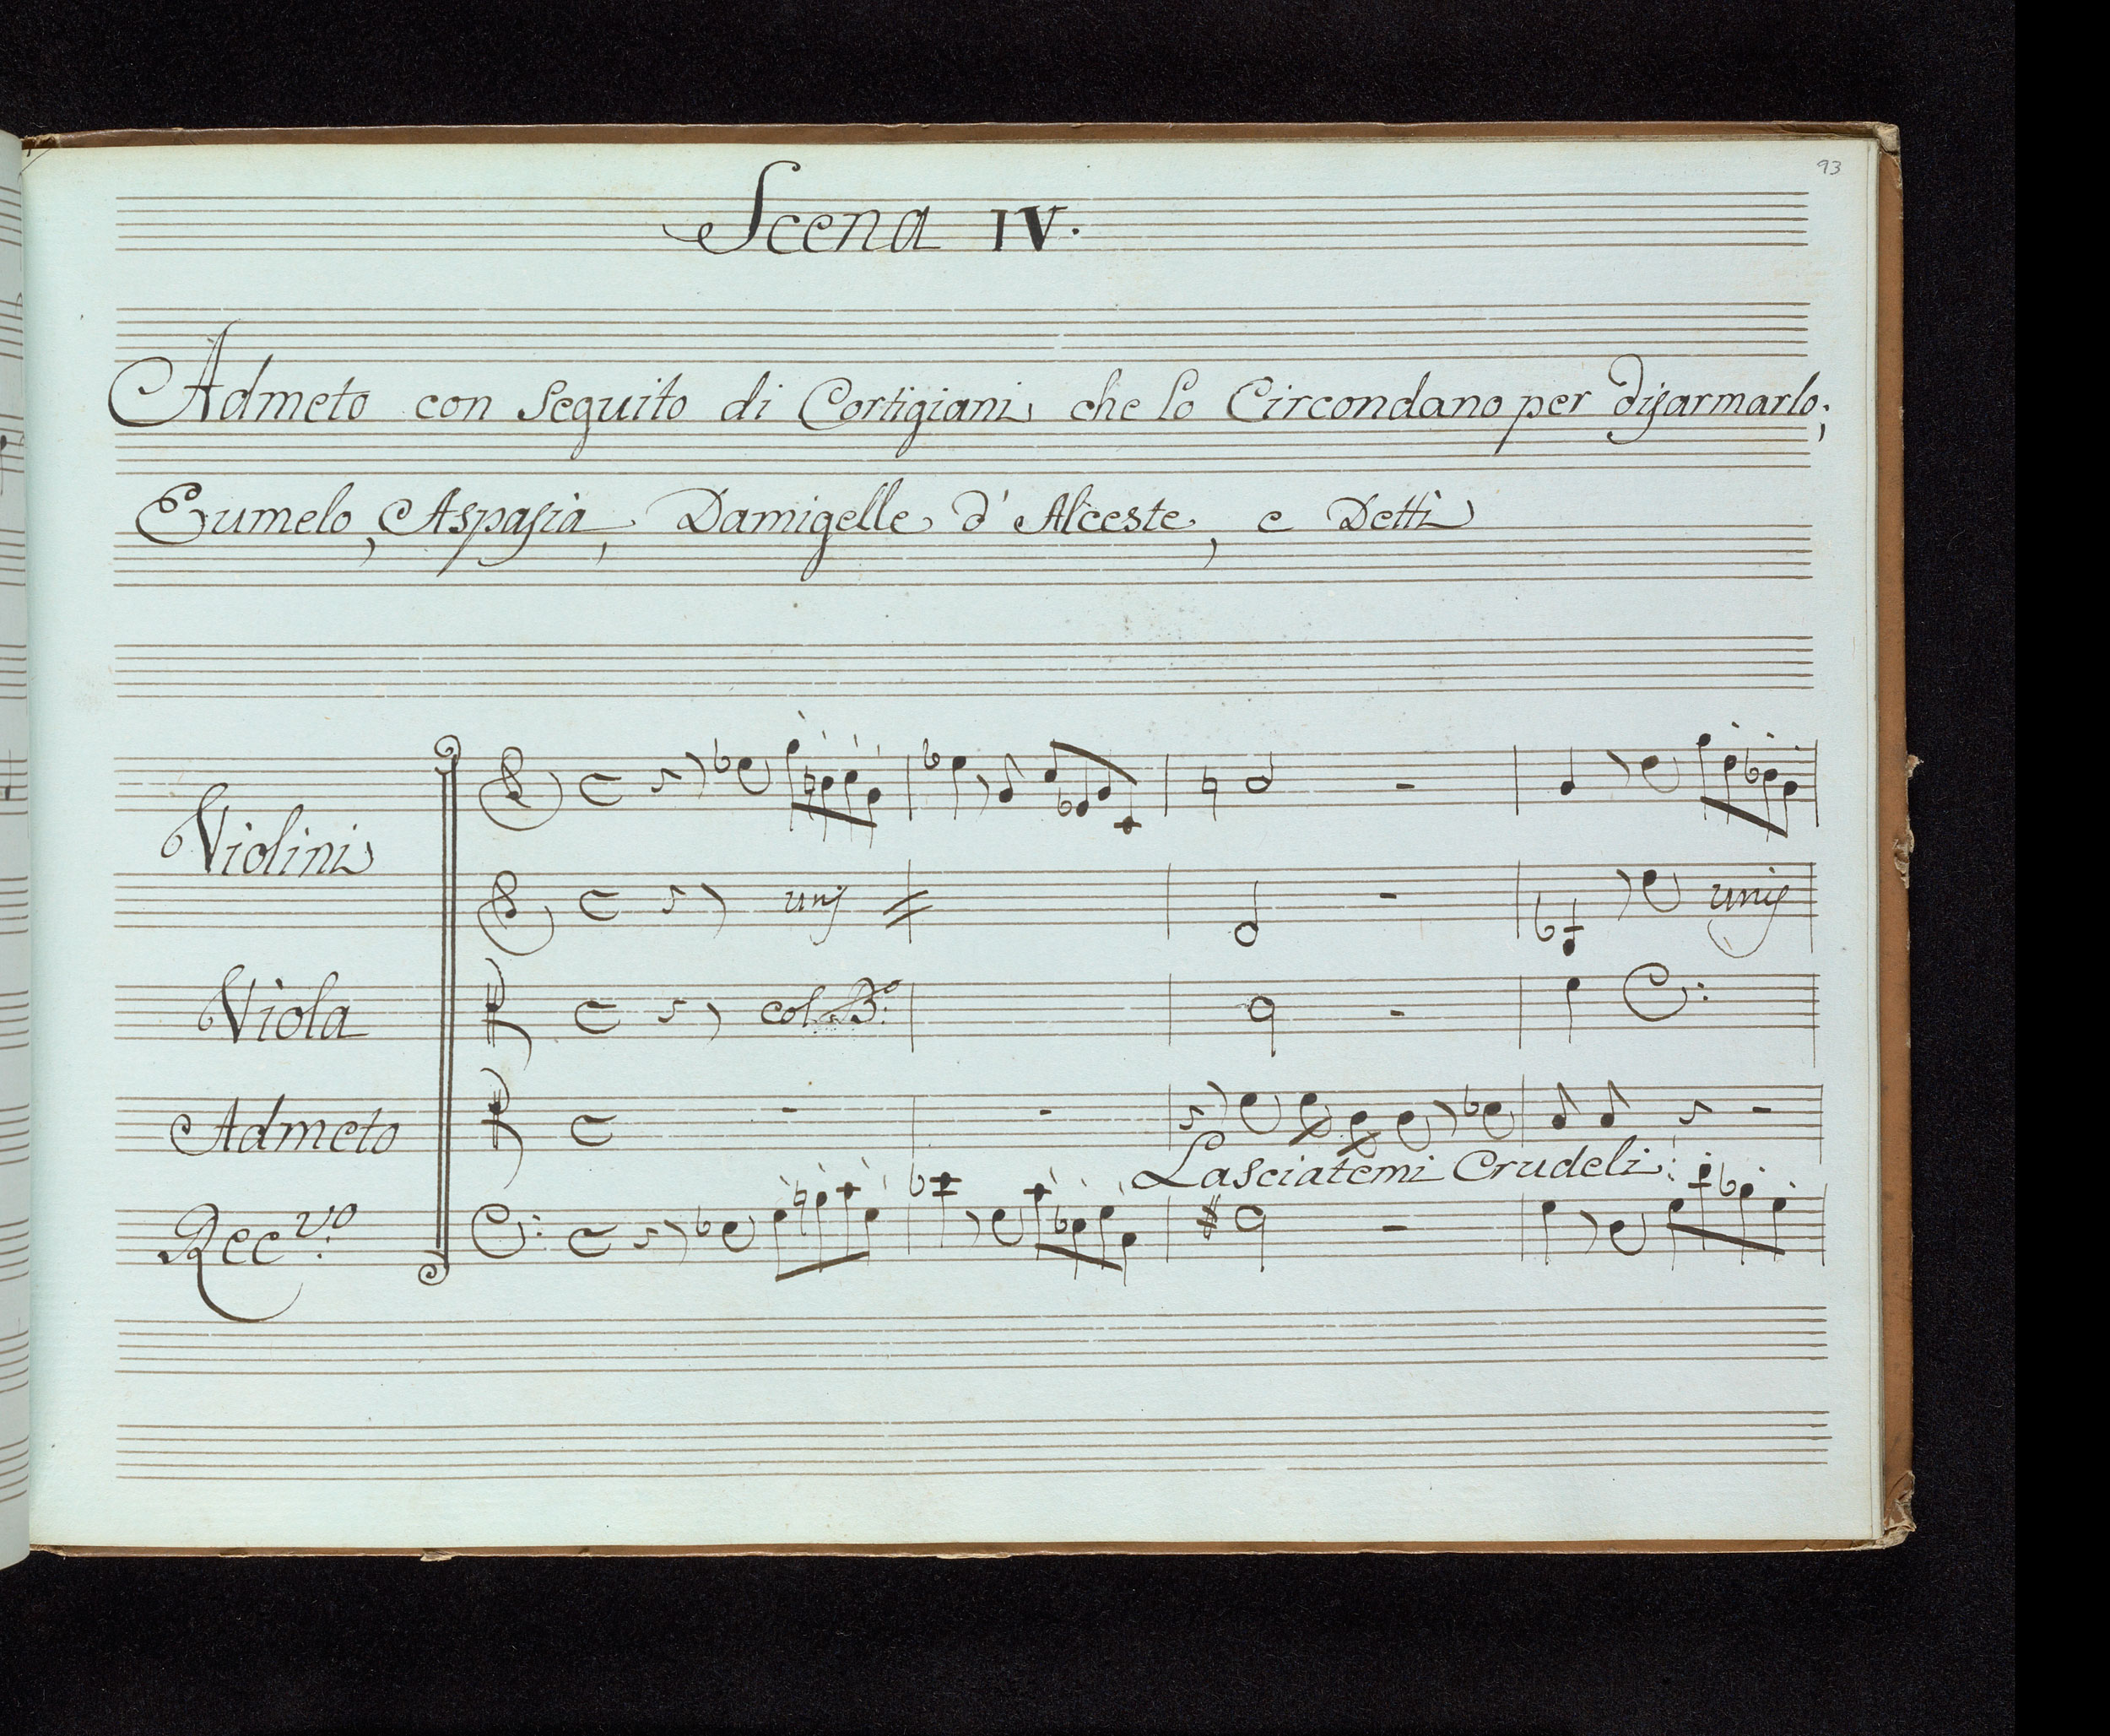 93
Scena IV.
Admeto con Seguito di Cortigiani che lo Circondano per disarmarlo;
Eumelo, Aspasia, Damigelle d'Alceste, e Detti
Violini
unis
unis
Viola
col B.º
Admeto
Lasciatemi Crudeli:
Rec.vo